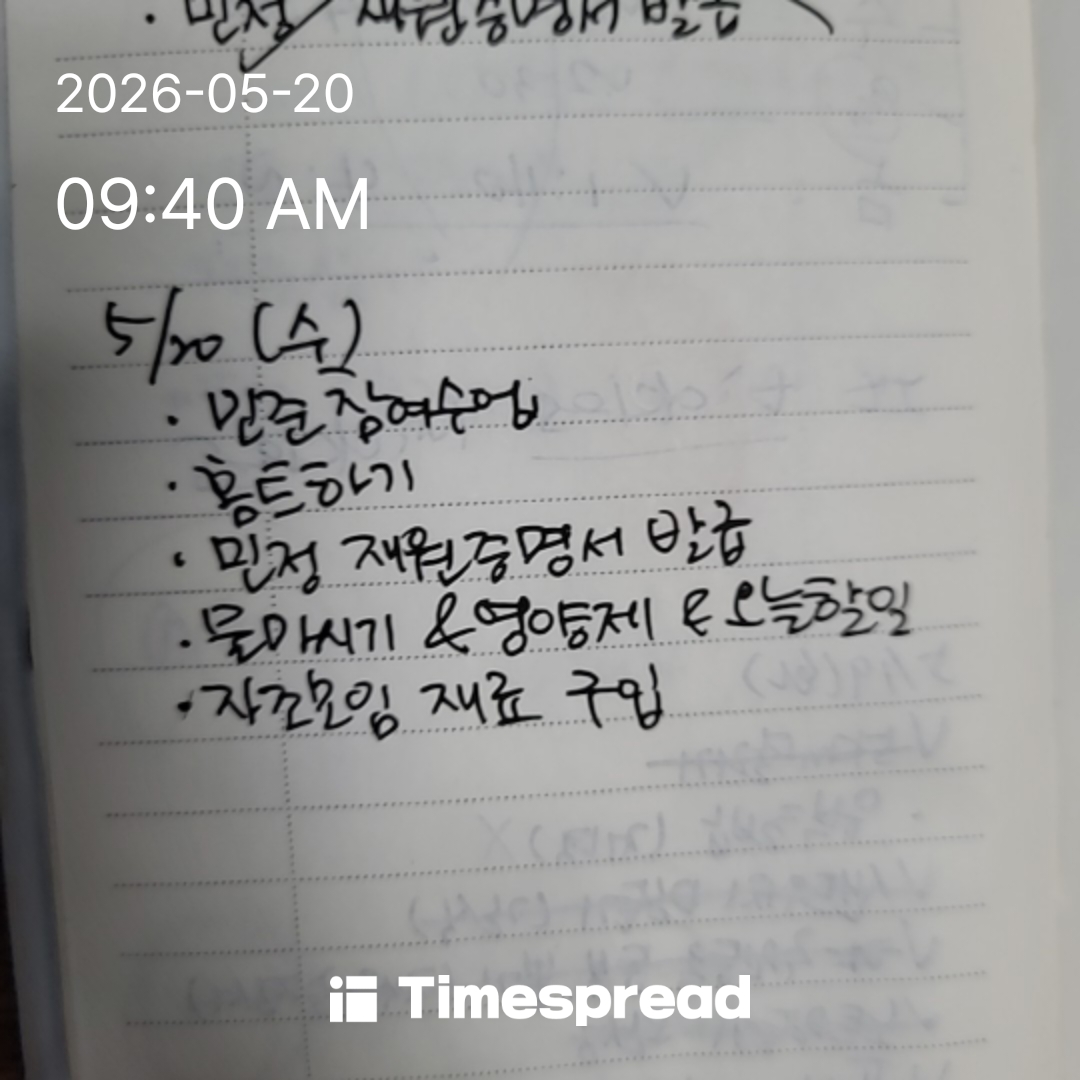 · 민정 재원증명서 발급
2026-05-20
09:40 AM
5/20 (수)
· 민준 참여수업
· 홈트하기
· 민정 재원증명서 발급
· 물마시기 & 영양제 & 오늘할일
· 자조모임 재료 구입
Timespread